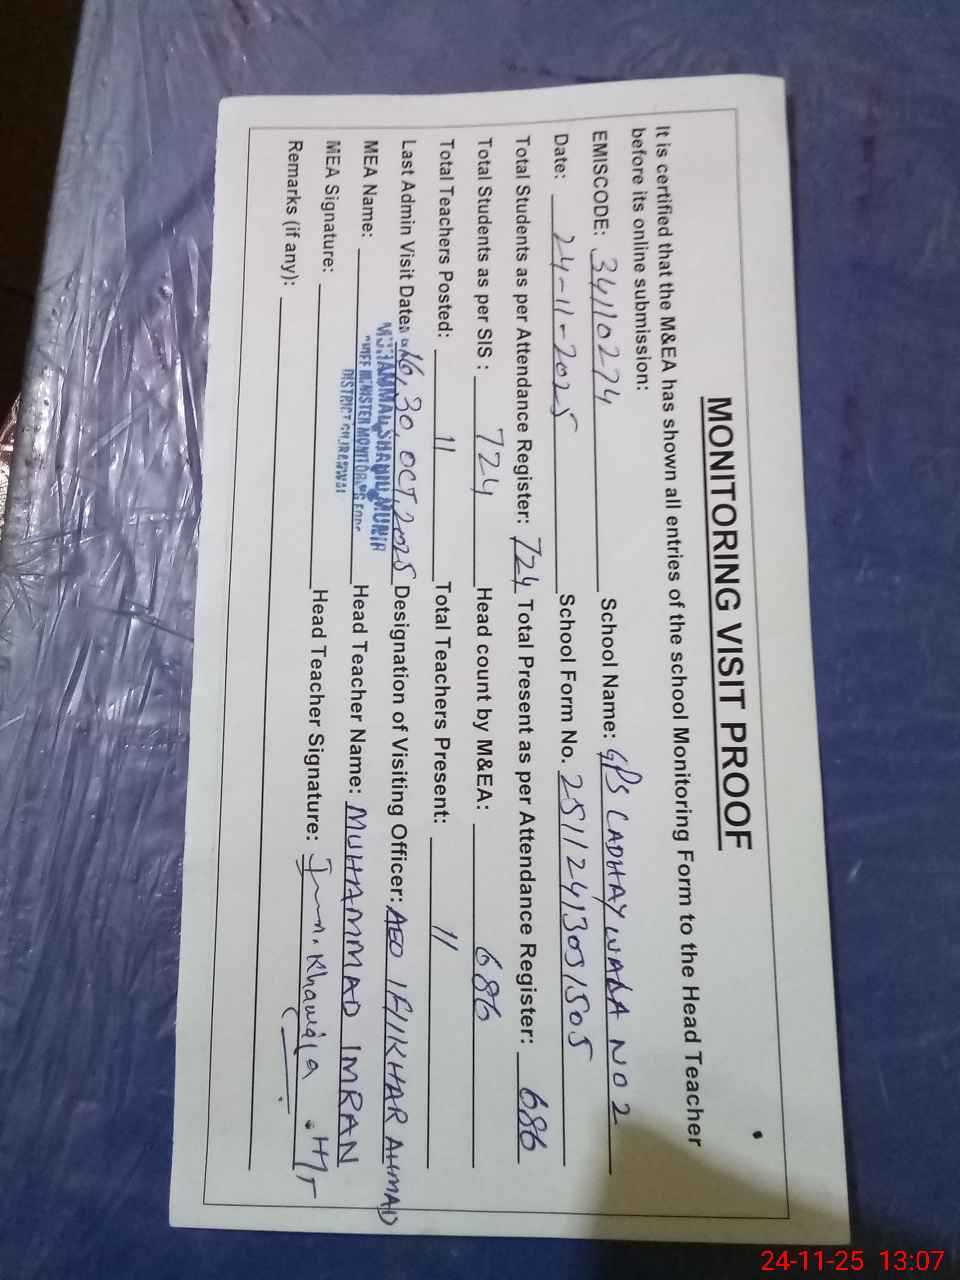 MONITORING VISIT PROOF
It is certified that the M&EA has shown all entries of the school Monitoring Form to the Head Teacher
before its online submission:
EMISCODE: 34110274 School Name: GPS LADHAYWALA NO 2
Date: 24-11-2025 School Form No. 25112413051505
Total Students as per Attendance Register: 724 Total Present as per Attendance Register: 686
Total Students as per SIS : 724 Head count by M&EA: 686
Total Teachers Posted: 11 Total Teachers Present: 11
Last Admin Visit Date: 16, 30, OCT, 2025 Designation of Visiting Officer: AEO IFTIKHAR AHMAD
MEA Name: MUHAMMAD MUNIR Head Teacher Name: MUHAMMAD IMRAN
CHIEF MINISTER MONITORING FORCE
DISTRICT GUJRANWALA
MEA Signature: Head Teacher Signature: H/T
Remarks (if any):
24-11-25 13:07